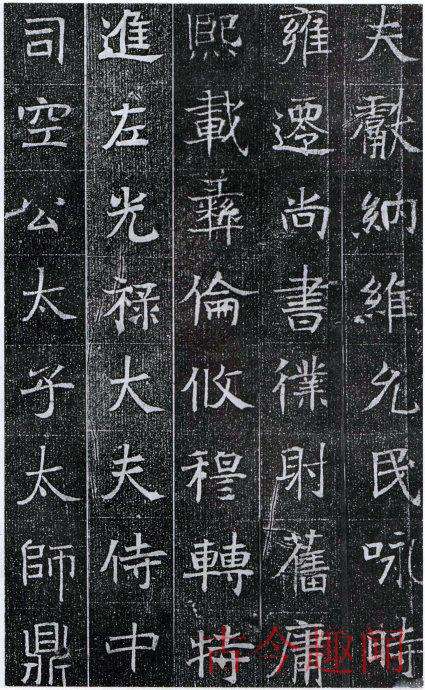 夫獻納維允民咏時
雍遷尚書僕射舊庸
熙載彝倫攸穆轉特
進左光祿大夫侍中
司空公太子太師鼎
古今趣闻